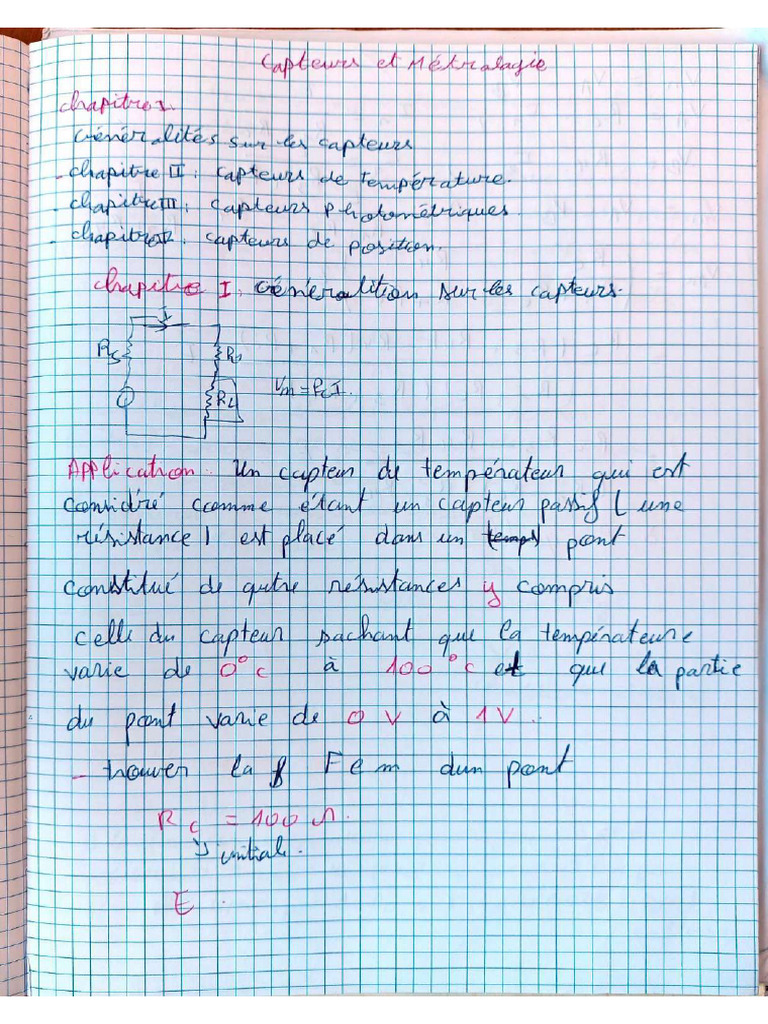 Capteurs et Métrologie
chapitres.
Généralités sur les capteurs
- chapitre II : capteurs de température.
- chapitre III : capteurs photométriques.
- chapitre IV : capteurs de position.
chapitre I : Générolition sur les capteurs.
I
Rs
RL
Vm = Rc I.
Application : Un capteur de températeur qui est
considré comme étant un capteur passif ( une
résistance ) est placé dans un temps pont
constitué de qutre résistances y compris
celle du capteur sachant que la températeure
varie de 0°c à 100°c et que la partie
du pont varie de 0 V à 1V.
- trouver la f Fem dun pont
Rc = 100 Ω.
initial.
E.